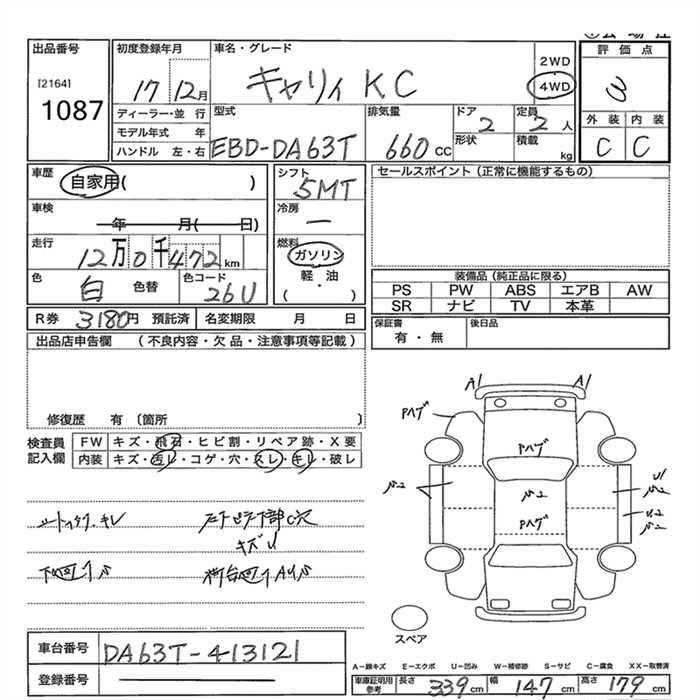 出品番号
[2164]
1087
初度登録年月
17 12月
ディーラー・並 行
モデル年式 年
ハンドル 左・右
車名・グレード
キャリィ KC
2WD
4WD
型式
EBD-DA63T
排気量
660 CC
ドア
2
形状
定員
2 人
積載
kg
評 価 点
3
外 装 内 装
C C
車歴
自家用( )
車検
年 月( 日)
走行
12万0千472km
色
白 色替
色コード
26U
シフト
5MT
冷房
ー
燃料
ガソリン
軽・油
( )
セールスポイント(正常に機能するもの)
装備品(純正品に限る)
PS PW ABS エアB AW
SR ナビ TV 本革
R券 3180円 預託済 名変期限 月 日
保証書
有・無
後日品
出品店申告欄 (不良内容・欠品・注意事項等記載)
修復歴 有 〔箇所 〕
検査員
記入欄
FW キズ・飛石・ヒビ割・リペア跡・X要
内装 キズ・汚レ・コゲ・穴・スレ・キレ・破レ
A1 A1
Pハゲ
Pハゲ
Pハゲ
U1
U2
スペア
車台番号 DA63T-413121
登録番号
A−線キズ E−エクボ U−凹み W−補修跡 S−サビ C−腐食 XX−取替済
車庫証明用
参考
長さ 339cm 幅 147cm 高さ 179cm